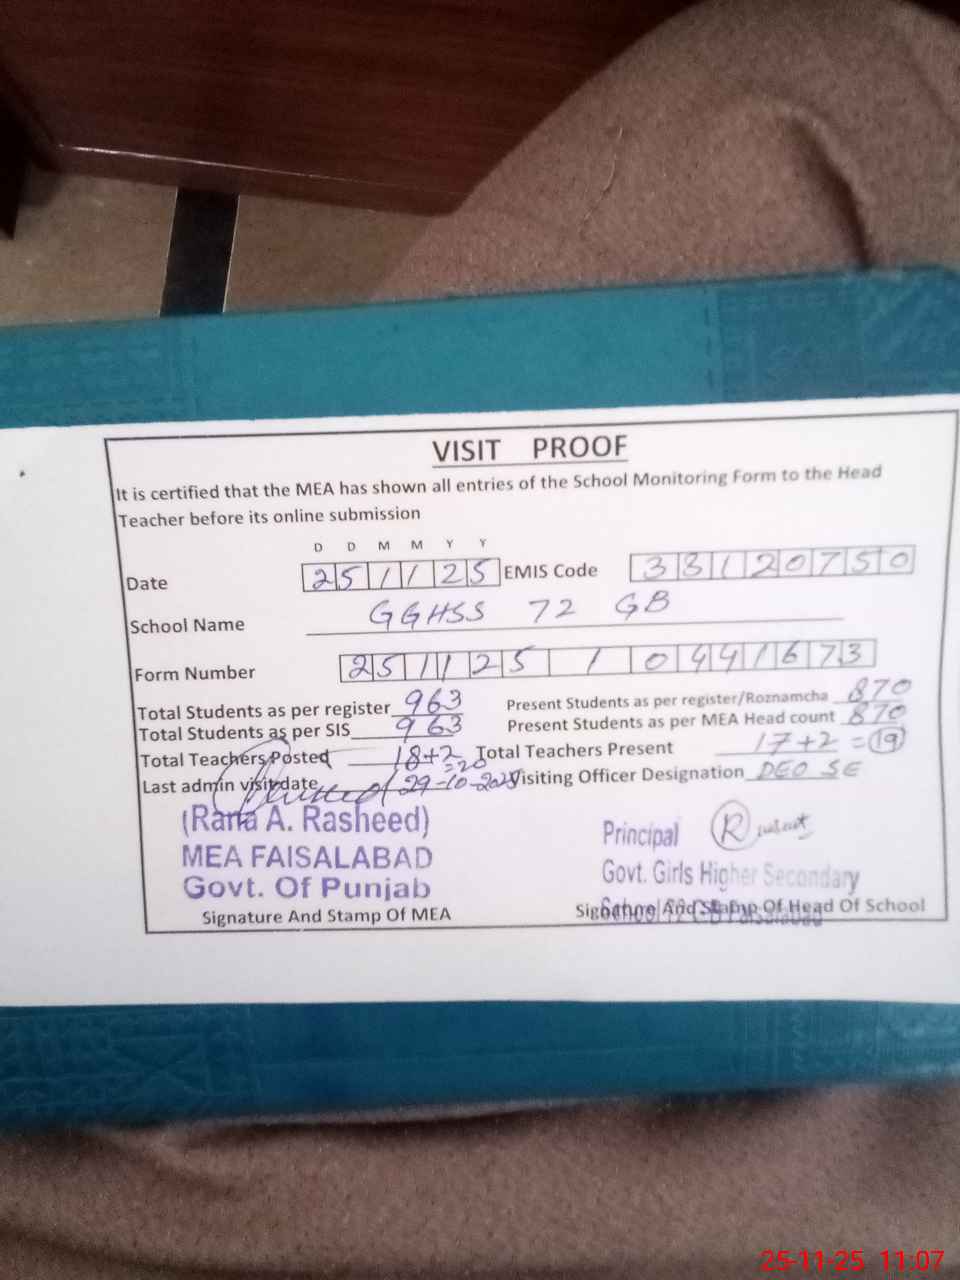 VISIT PROOF
It is certified that the MEA has shown all entries of the School Monitoring Form to the Head
Teacher before its online submission
D D M M Y Y
Date 25 11 25 EMIS Code 33120750
School Name GGHSS 72 GB
Form Number 251125 1 0441673
Total Students as per register 963 Present Students as per register/Roznamcha 870
Total Students as per SIS 963 Present Students as per MEA Head count 870
Total Teachers Posted 18+2 =20 Total Teachers Present 17+2 = 19
Last admin visit date 29-10-2025 Visiting Officer Designation DEO SE
(Rana A. Rasheed)
MEA FAISALABAD
Govt. Of Punjab
Signature And Stamp Of MEA
Principal
Govt. Girls Higher Secondary
School 72 GB Faisalabad
Signature And Stamp Of Head Of School
25-11-25 11:07